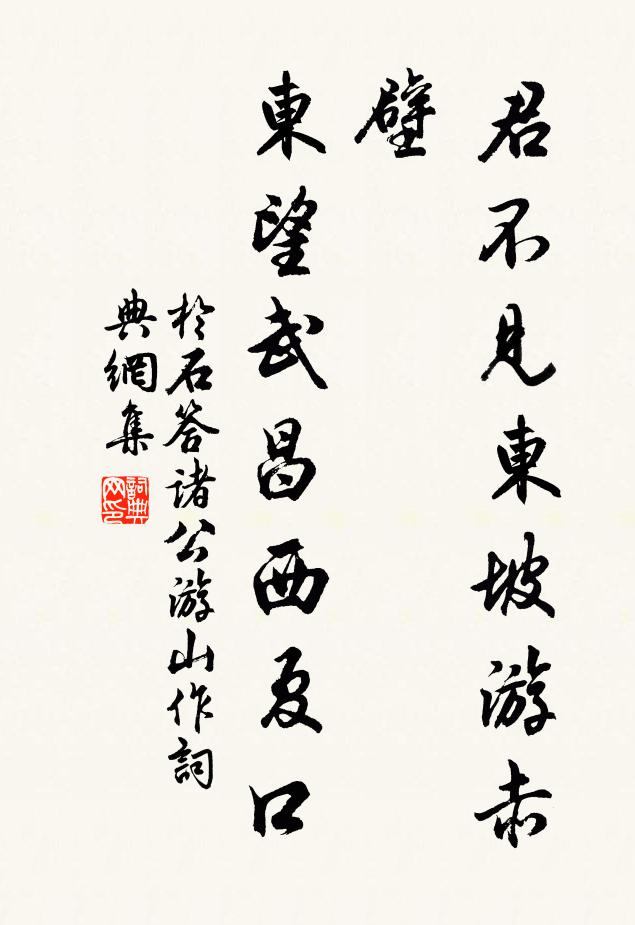 君不見東坡游赤
壁
東望武昌西夏口
於石答諸公游山作詞
典網集
詞典
网印